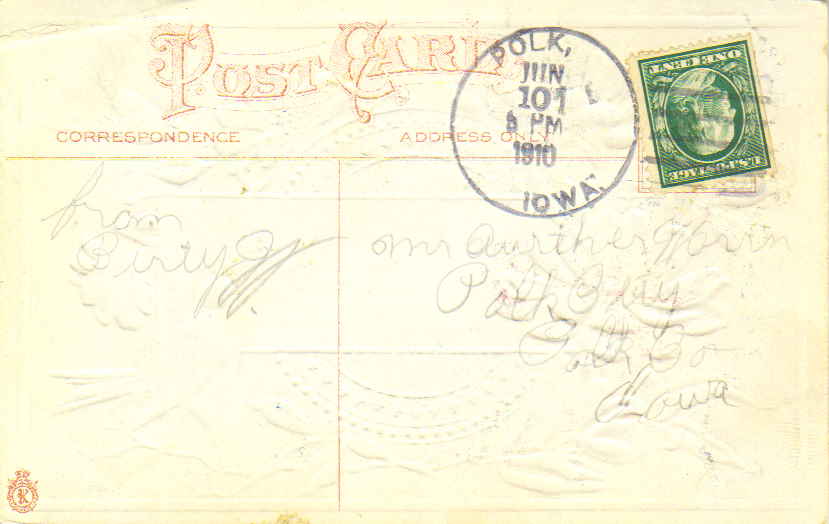 POST CARD
CORRESPONDENCE
ADDRESS ONLY
POLK,
JUN
10
PM
1910
IOWA.
ONE CENT
U.S. POSTAGE
from
Birty
Mr Aurther
Polk
Polk Co
Iowa
K